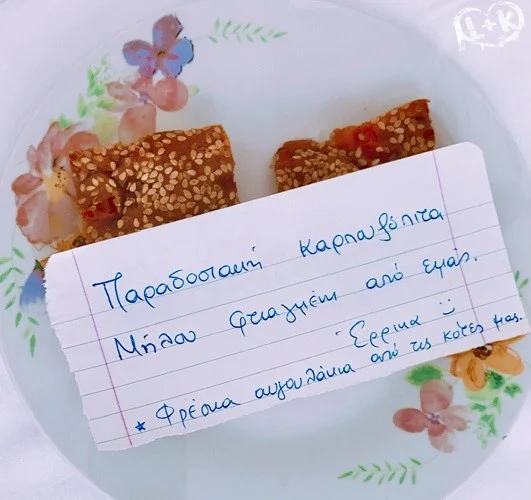 L+K
Παραδοσιακή καρπουζόπιτα
Μήλου φτιαγμένη από εμάς.
Έρρικα :)
* Φρέσκα αυγουλάκια από τις κότες μας.